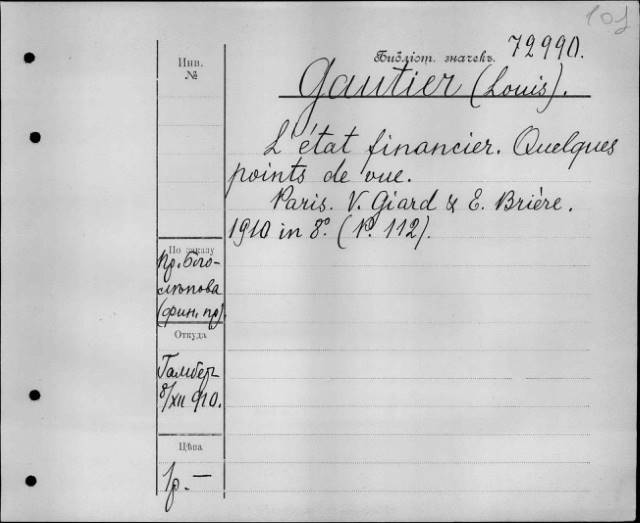 101
Библіот. значекъ 72990.
Инв.
№
Gautier (Louis).
L'état financier. Quelques
points de vue.
Paris. V. Giard & E. Brière.
1910 in 8°. (P. 112).
По заказу
пр. Бого-
лѣпова
(фин. пр).
Откуда
Гамбер
8/XII 910.
Цѣна
1р. —